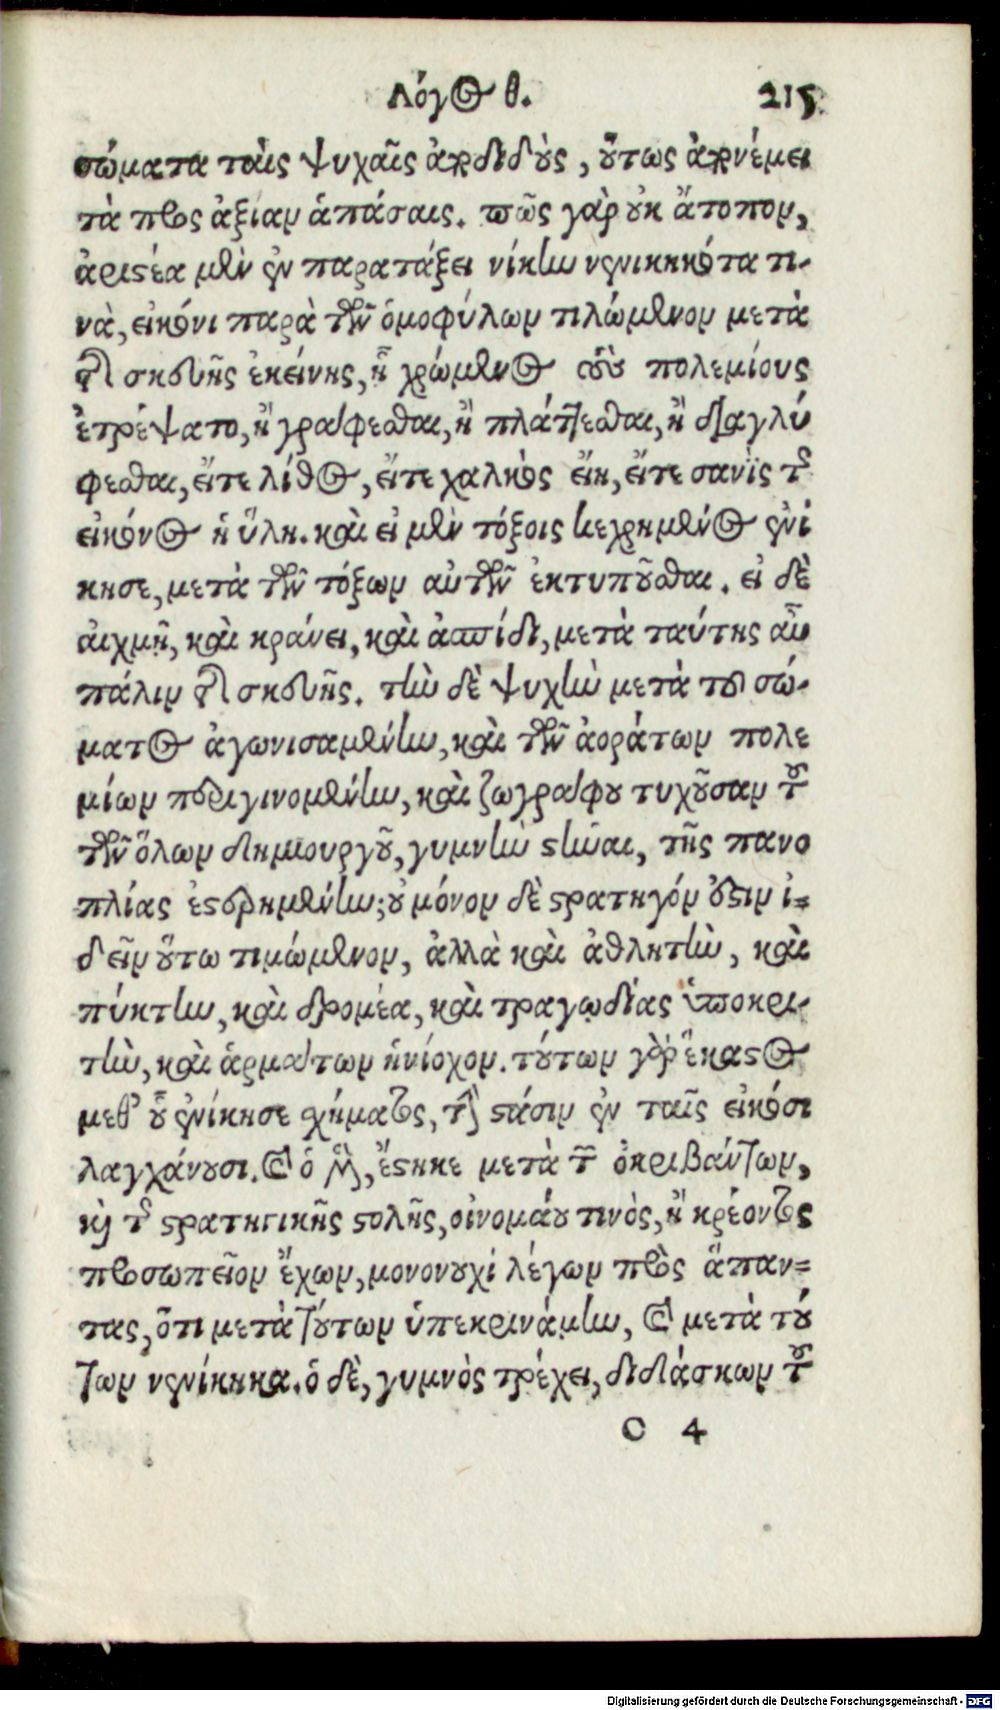 Λόγος θ. 215
σώματα ταῖς ψυχαῖς ἀποδιδοὺς, οὕτως ἀπονέμει
τὰ πρὸς ἀξίαν ἁπάσαις. πῶς γὰρ οὐκ ἄτοπον,
ἀριστέα μὲν ἐν παρατάξει νίκην νενικηκότα τι-
νὰ, εἰκόνι παρὰ τῶν ὁμοφύλων τιμώμενον μετὰ
τῆς σκευῆς ἐκείνης, ᾗ χρώμενος τοὺς πολεμίους
ἐτρέψατο, ἢ γράφεσθαι, ἢ πλάττεσθαι, ἢ διαγλύ
φεσθαι, εἴτε λίθος, εἴτε χαλκὸς εἴη, εἴτε σανὶς τῆς
εἰκόνος ἡ ὕλη. καὶ εἰ μὲν τόξοις κεχρημένος ἐνί
κησε, μετὰ τῶν τόξων αὐτῶν ἐκτυποῦσθαι. εἰ δὲ
αἰχμῇ, καὶ κράνει, καὶ ἀσπίδι, μετὰ ταύτης αὖ
πάλιν τῆς σκευῆς. τὴν δὲ ψυχὴν μετὰ τοῦ σώ-
ματος ἀγωνισαμένην, καὶ τῶν ἀοράτων πολε
μίων περιγινομένην, καὶ ζωγράφου τυχοῦσαν τοῦ
τῶν ὅλων δημιουργοῦ, γυμνὴν στῆναι, τῆς πανο
πλίας ἐστερημένην; οὐ μόνον δὲ στρατηγόν ἐστιν ἰ=
δεῖν οὕτω τιμώμενον, ἀλλὰ καὶ ἀθλητὴν, καὶ
πύκτην, καὶ δρομέα, καὶ τραγῳδίας ὑποκρι-
τὴν, καὶ ἁρμάτων ἡνίοχον. τούτων γὰρ ἕκαστος
μεθ' οὗ ἐνίκησε σχήματος, τὴν στάσιν ἐν ταῖς εἰκόσι
λαγχάνουσι. καὶ ὁ μὲν, ἕστηκε μετὰ τῶν ὀκριβάντων,
καὶ τῆς στρατηγικῆς στολῆς, οἰνομάου τινὸς, ἢ κρέοντος
προσωπεῖον ἔχων, μονονουχὶ λέγων πρὸς ἅπαν=
τας, ὅτι μετὰ τούτων ὑπεκρινάμην, καὶ μετὰ τού
των νενίκηκα. ὁ δὲ, γυμνὸς τρέχει, διδάσκων τοὺς
O 4
Digitalisierung gefördert durch die Deutsche Forschungsgemeinschaft - DFG